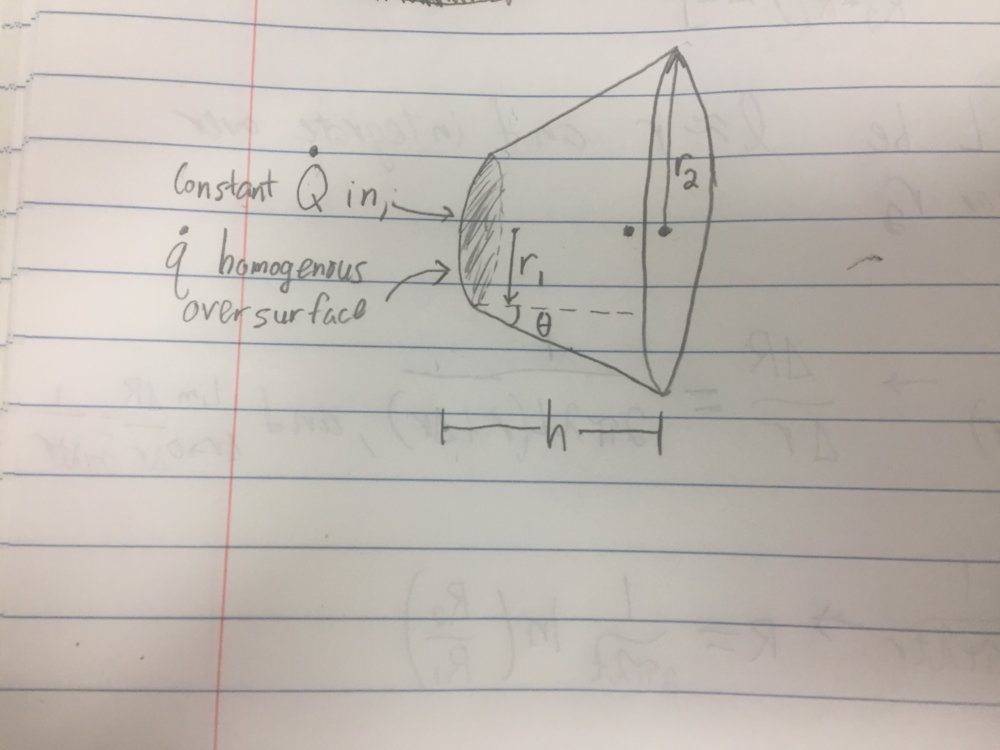 Constant Q̇ in,
q̇ homogenous
over surface
r₁
r₂
θ
h